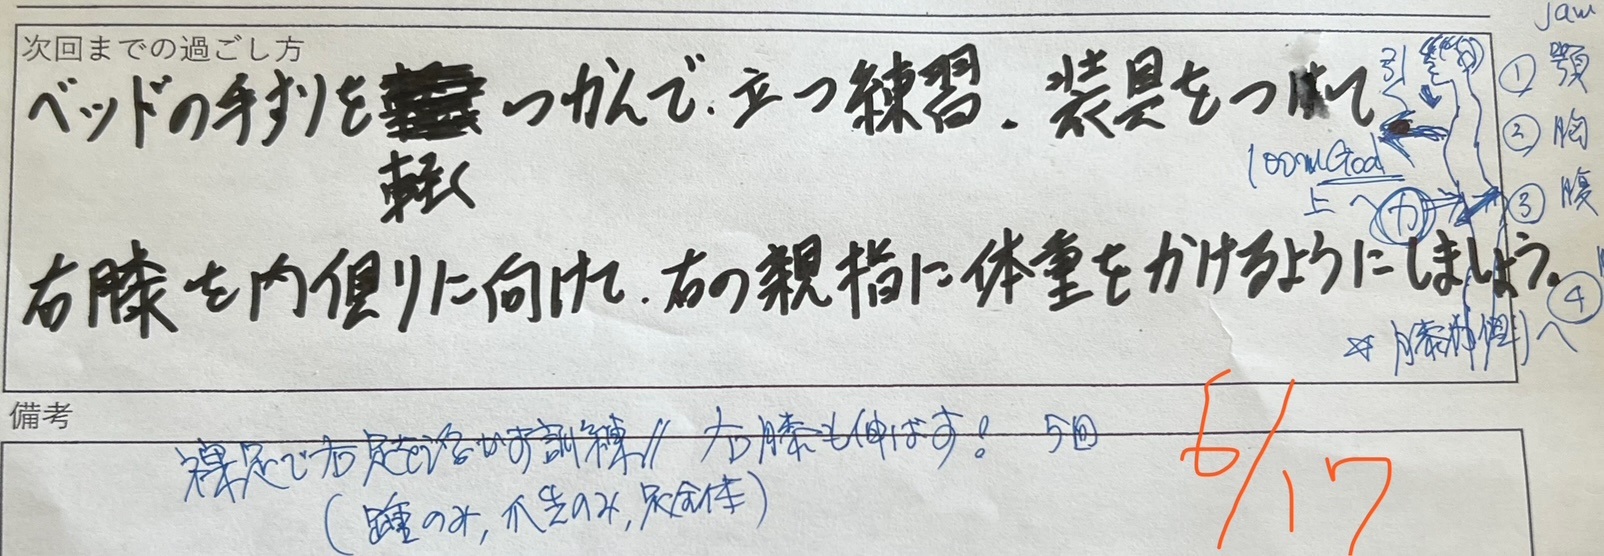 次回までの過ごし方
ベッドの手すりを軽くつかんで、立つ練習。装具をつけて
右膝を内側に向けて、右の親指に体重をかけるようにしましょう。
jaw
① 顎
② 胸
③ 腹
④
引く
100m Goal
上へ 力
☆ 膝外側へ
備考
裸足で右足を浮かす訓練// 右膝も伸ばす! 5回
(踵のみ, 爪先のみ, 足全体)
6/17